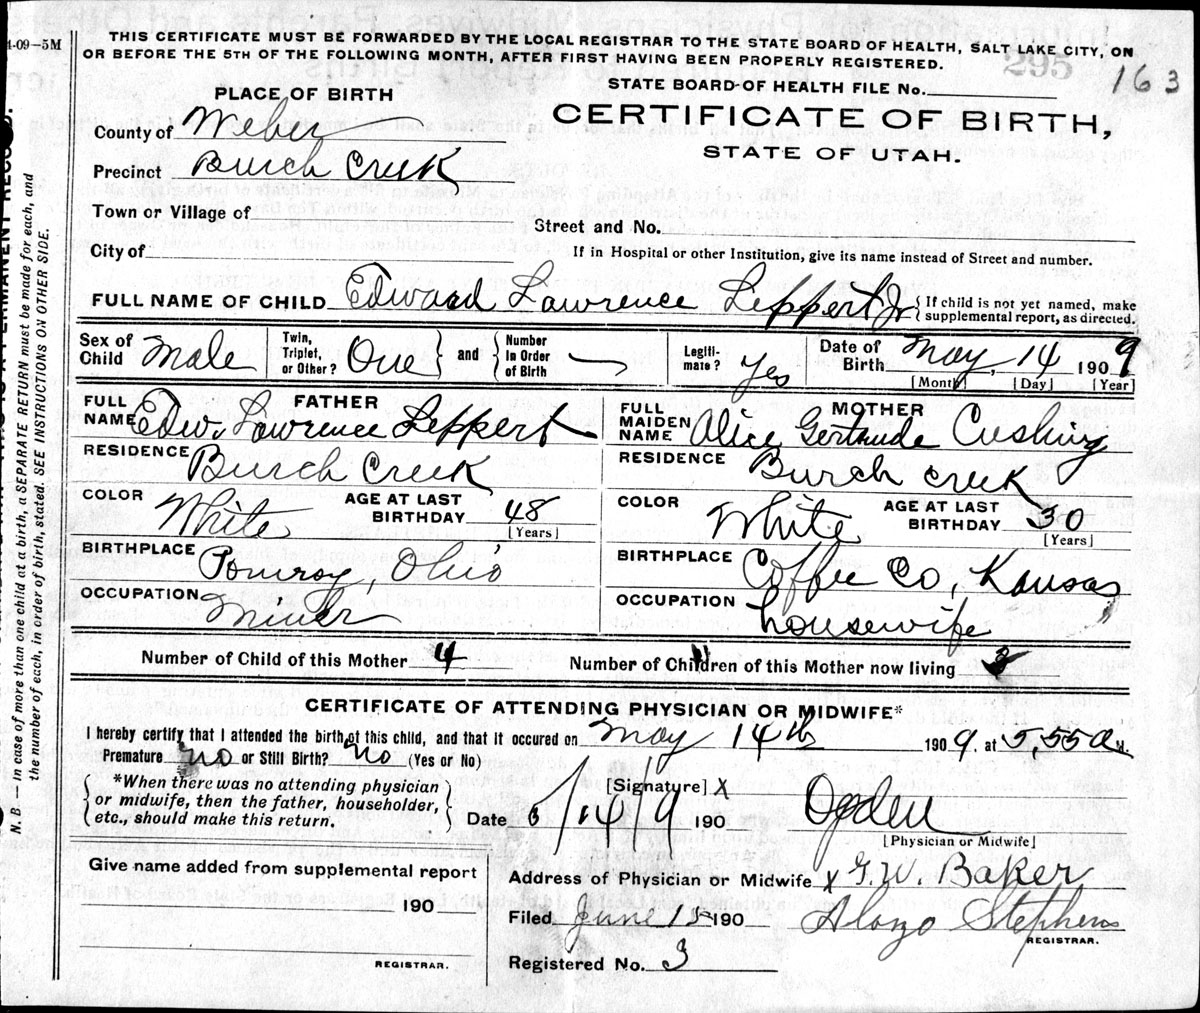 1-09-5M
THIS CERTIFICATE MUST BE FORWARDED BY THE LOCAL REGISTRAR TO THE STATE BOARD OF HEALTH, SALT LAKE CITY, ON
OR BEFORE THE 5TH OF THE FOLLOWING MONTH, AFTER FIRST HAVING BEEN PROPERLY REGISTERED.
295
163
STATE BOARD OF HEALTH FILE No.
PLACE OF BIRTH
CERTIFICATE OF BIRTH,
STATE OF UTAH.
County of Weber
Precinct Burch Creek
Town or Village of
Street and No.
City of
If in Hospital or other Institution, give its name instead of Street and number.
FULL NAME OF CHILD Edward Lawrence Leppert Jr { If child is not yet named, make supplemental report, as directed.
Sex of Child Male Twin, Triplet, or Other? One } and { Number in Order of Birth Legiti-mate? Yes Date of Birth May 14 1909
[Month] [Day] [Year]
FATHER
FULL NAME Edw. Lawrence Leppert
RESIDENCE Burch Creek
COLOR White AGE AT LAST BIRTHDAY 48 [Years]
BIRTHPLACE Pomroy, Ohio
OCCUPATION Miner
MOTHER
FULL MAIDEN NAME Alice Gertrude Cushing
RESIDENCE Burch Creek
COLOR White AGE AT LAST BIRTHDAY 30 [Years]
BIRTHPLACE Coffee Co, Kansas
OCCUPATION housewife
Number of Child of this Mother 4 Number of Children of this Mother now living
CERTIFICATE OF ATTENDING PHYSICIAN OR MIDWIFE*
I hereby certify that I attended the birth of this child, and that it occured on May 14th 1909, at 5,55 a M.
Premature no or Still Birth? no (Yes or No)
*When there was no attending physician
or midwife, then the father, householder,
etc., should make this return.
[Signature] X Ogden
Date 6/14/9 190
[Physician or Midwife]
Give name added from supplemental report
190
REGISTRAR.
Address of Physician or Midwife X G.W. Baker
Filed June 15 190 Alonzo Stephens
REGISTRAR.
Registered No. 3
N. B.—In case of more than one child at a birth, a SEPARATE RETURN must be made for each, and
the number of each, in order of birth, stated. SEE INSTRUCTIONS ON OTHER SIDE.